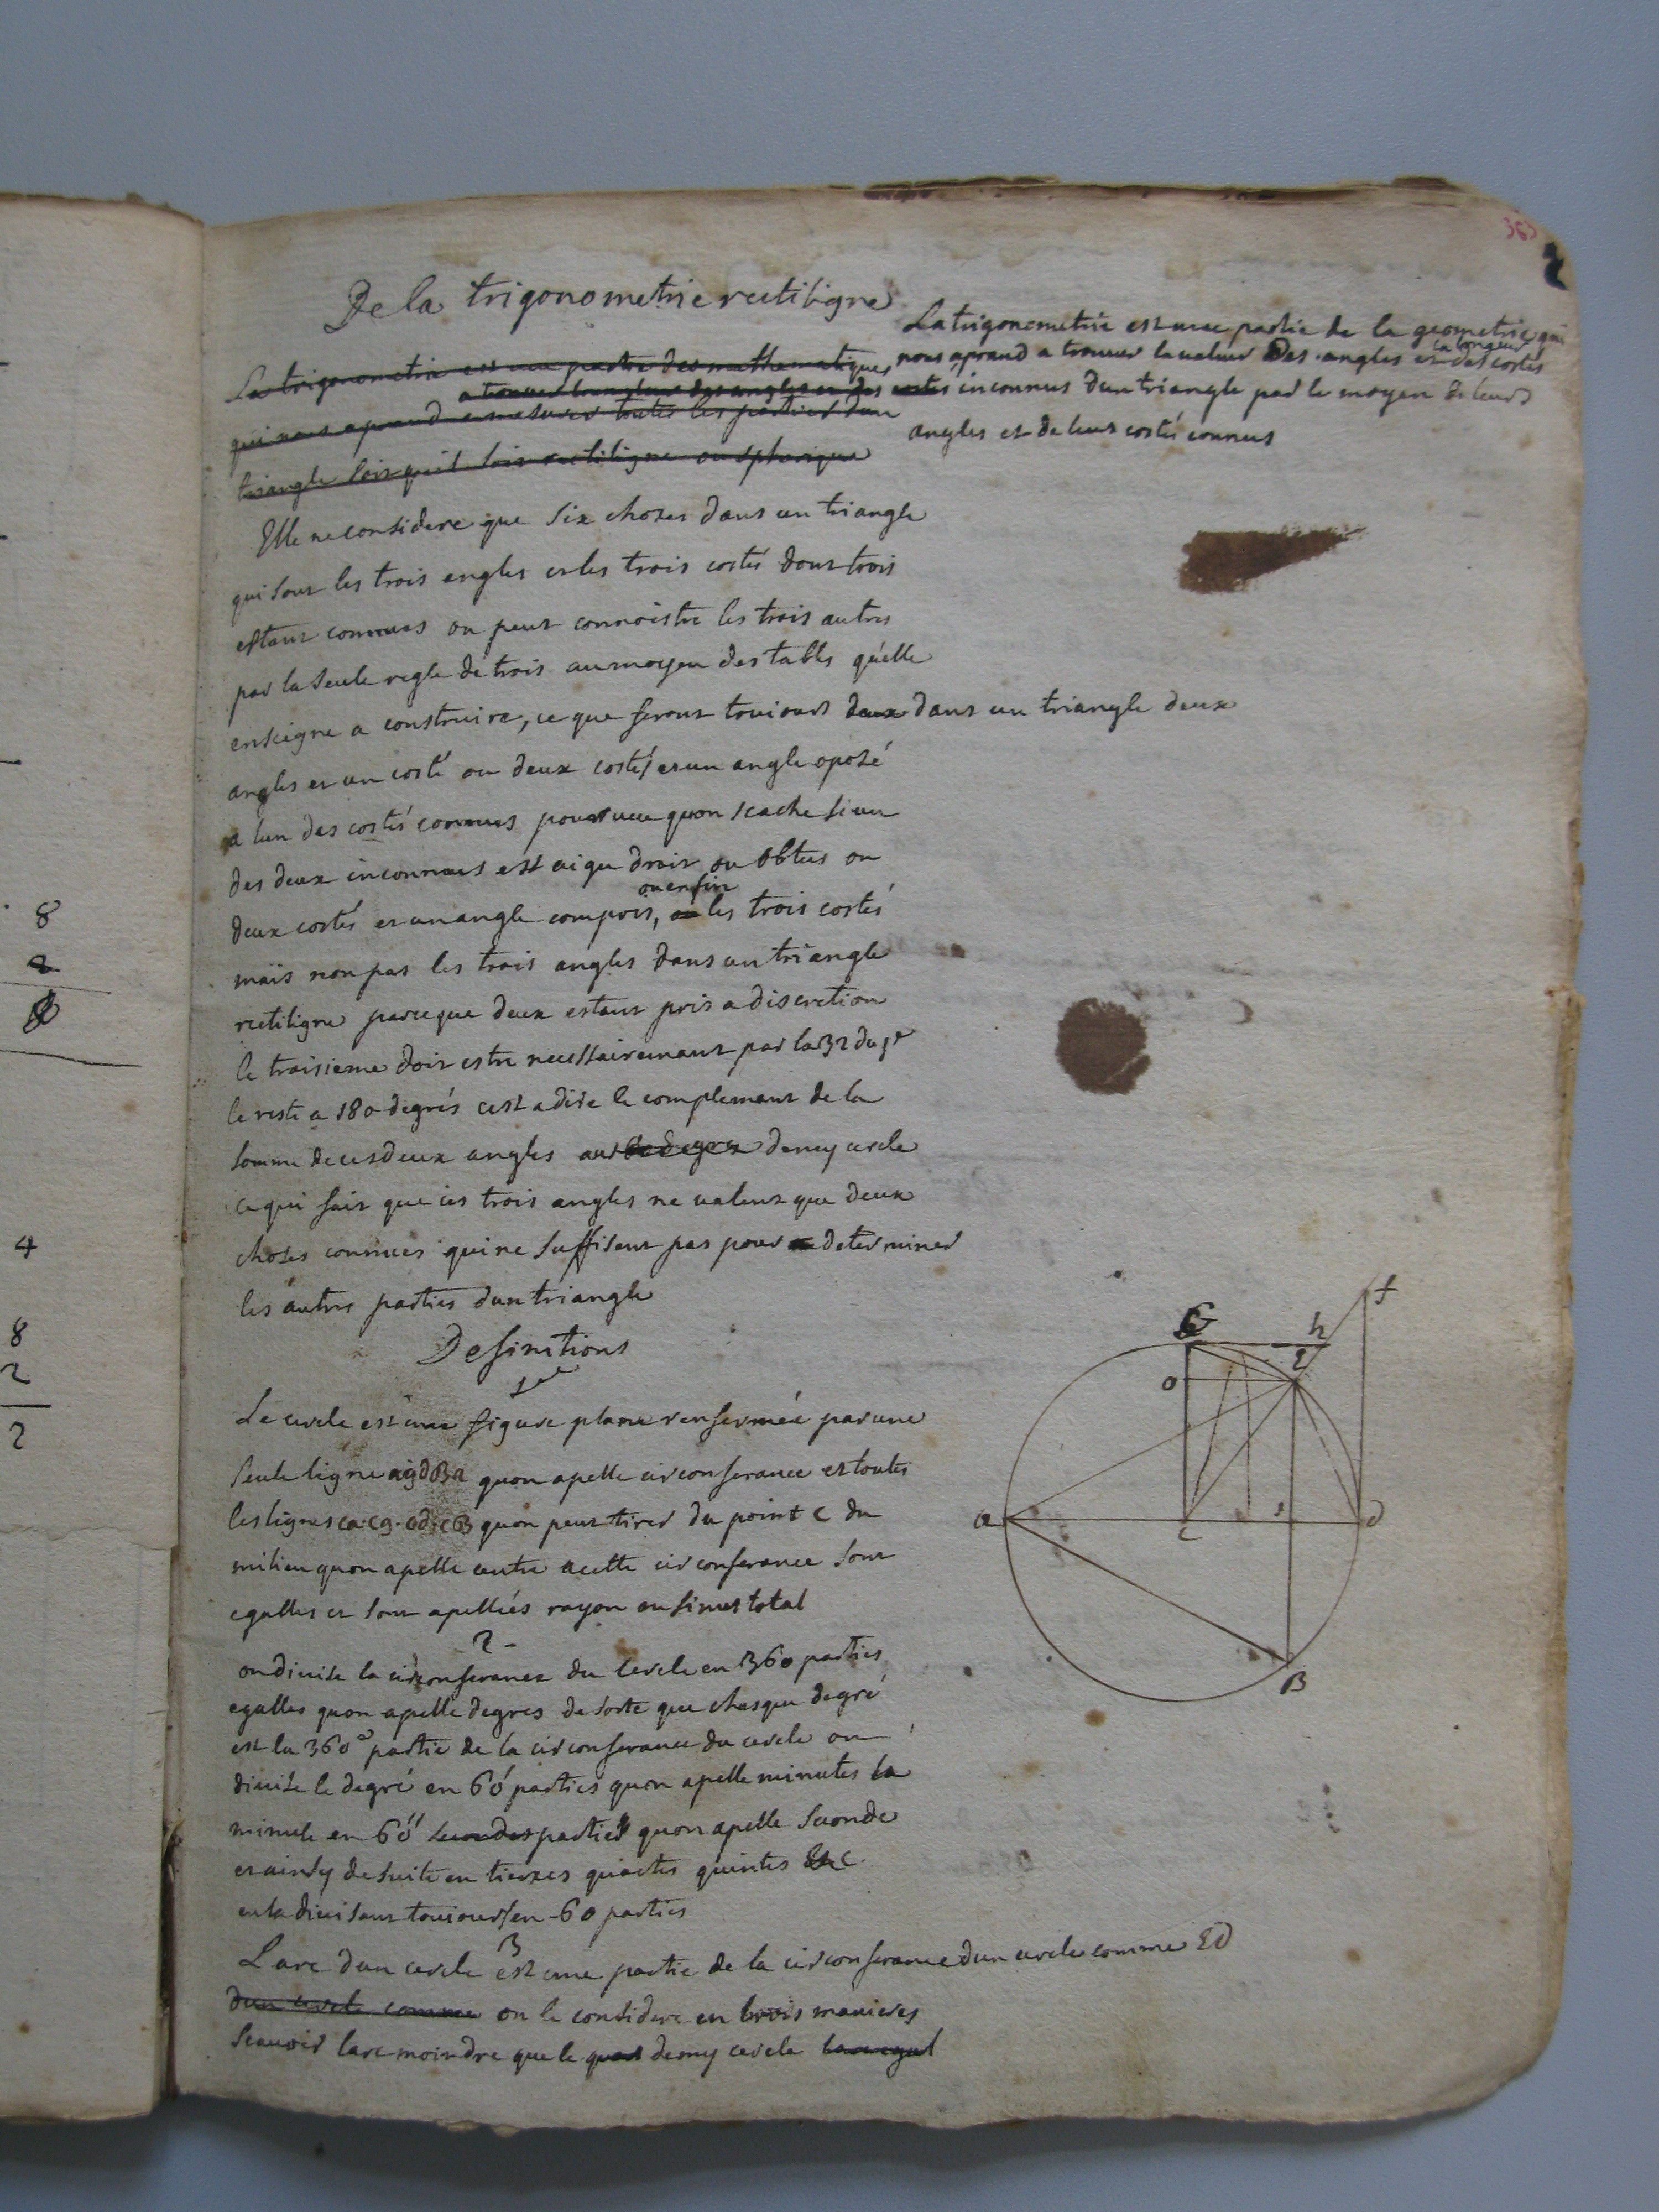 363
2
De la trigonometrie rectiligne
La trigonometrie est une partie des mathematiques
qui nous aprend a mesurer toutes les parties dun
a trouver la valeur des angles et des
triangle soit quil soit rectiligne ou spherique
La trigonometrie est une partie de la geometrie qui
nous aprend a trouver la valeur Des angles et la longeur des costés
costés inconnus dun triangle par le moyen de leurs
angles et de leurs costés connus
Elle ne considere que six chozes dans un triangle
qui sont les trois engles et les trois costés dont trois
estant connues on peut connoistre les trois autres
par la seule regle de trois au moyen des tables quelle
enseigne a construire, ce que seront toujours deux dans un triangle deux
angles et un costé ou deux costés et un angle oposé
a lun des costés connus pourveu quon scache si un
des deux inconnues est aigu droit ou obtus ou
deux costés et un angle compris, ou ou enfin les trois costés
mais non pas les trois angles dans un triangle
rectiligne parceque deux estant pris a discretion
le troisieme doit estre necessairemant par la 32 du 1er
le reste a 180 degrés cest a dire le complemant de la
somme de ces deux angles au demy cercle
ce qui fait que ces trois angles ne valent que deux
choses connues qui ne suffisent pas pour determiner
les autres parties dun triangle
Definitions
1ere
Le cercle est une figure plane renfermée par une
seule ligne agdBa quon apelle circonferance et toutes
les lignes ca. cg. cd. cB quon peut tirer du point c du
milieu quon apelle centre a cette circonferance sont
egalles et sont apellées rayon ou sinus total
2
on divise la circonferance du cercle en 360 parties
egalles quon apelle degres de sorte que chasque degré
est la 360e partie de la circonferance du cercle on
divise le degré en 60' parties quon apelle minutes la
minute en 60'' secondes parties quon apelle seconde
et ainsy de suite en tierces quartes quintes Etc
en la divisant toujours en 60 parties
3
L arc dun cercle est une partie de la circonferance dun cercle comme ED
dun cercle comme on le considere en trois manieres
scavoir larc moindre que le demy cercle
G
h
f
E
o
a
c
s
d
B
8
2
4
8
2
2